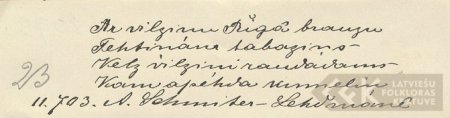 Ar vilzinu Rīgā brauzu
Tehtināne tabazins
Kelz vilzini raudadams
Kam apēhda kumeliņ
23
11.703. A. Schmiter - Lehdmanē
LATVIEŠU
FOLKLORAS
KRĀTUVE